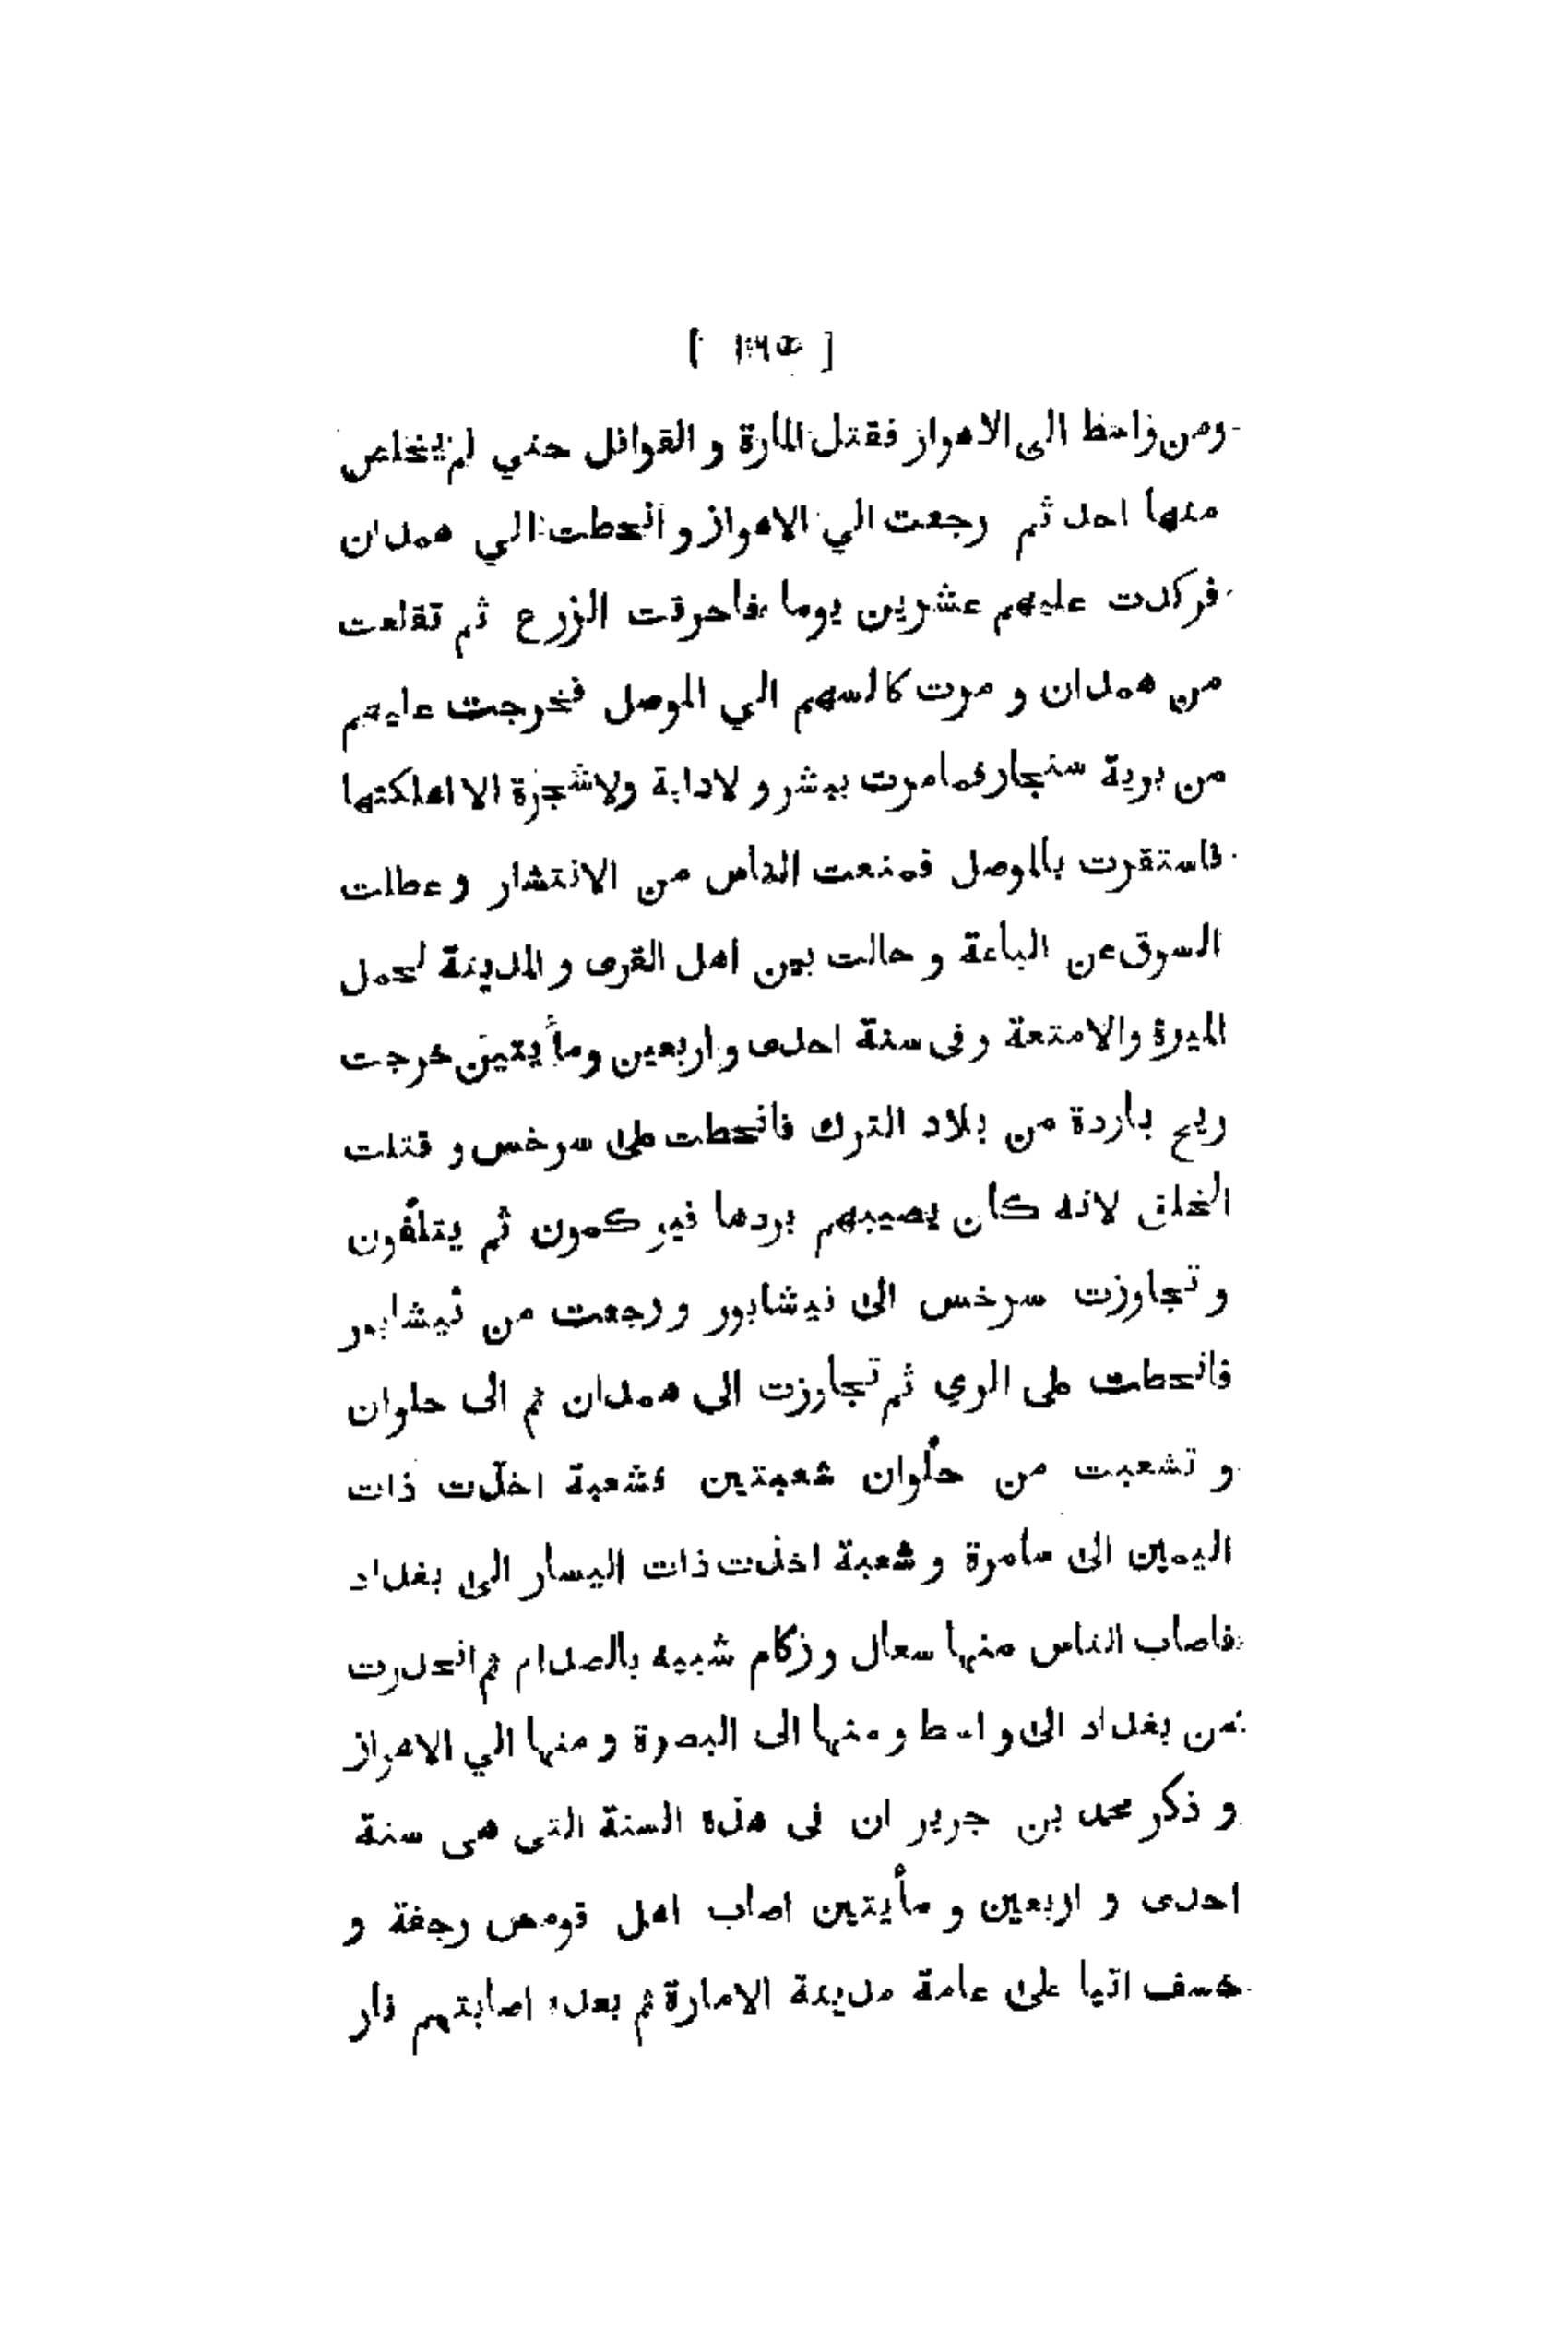 ومن واسط الى الاهواز فقتل المارة و القوافل حتي لم يخلص
منها احد ثم رجعت الي الاهواز و انحطت الي همدان
فركدت عليهم عشرين يوما فاحرقت الزرع ثم تقلعت
من همدان و مرت كالسهم الي الموصل فخرجت عليهم
من برية سنجار فمامرت ببشر و لادابة ولاشجرة الا اهلكتها
فاستقرت بالموصل فمنعت الناس من الانتشار و عطلت
السوق عن الباعة و حالت بين اهل القرى و المدينة لحمل
الميرة والامتعة و فى سنة احدى و اربعين ومأيتين خرجت
ريح باردة من بلاد الترك فانحطت على سرخس و قتلت
الخلق لانه كان يصيبهم بردها فيوكمون ثم يتلفون
و تجاوزت سرخس الى نيشابور و رجعت من نيشابور
فانحطت على الري ثم تجاوزت الى همدان ثم الى حلوان
و تشعبت من حلوان شعبتين فشعبة اخذت ذات
اليمين الى سامرة و شعبة اخذت ذات اليسار الى بغداد
فاصاب الناس منها سعال و زكام شبيه بالصدام ثم انحدرت
من بغداد الى واسط و منها الى البصرة و منها الي الاهواز
و ذكر محمد بن جرير ان فى هذه السنة التى هى سنة
احدى و اربعين و مأيتين اصاب اهل قومس رجفة و
خسف اتيا على عامة مدينة الامارة ثم بعده اصابتهم نار